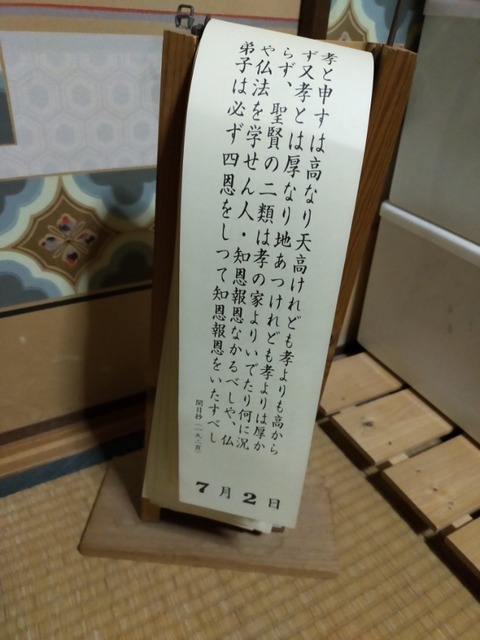 孝と申すは高なり天高けれども孝よりも高から
ず又孝とは厚なり地あつけれども孝よりは厚か
らず、聖賢の二類は孝の家よりいでたり何に況
や仏法を学せん人・知恩報恩なかるべしや、仏
弟子は必ず四恩をしつて知恩報恩をいたすべし
開目抄(一九二頁)
7月2日